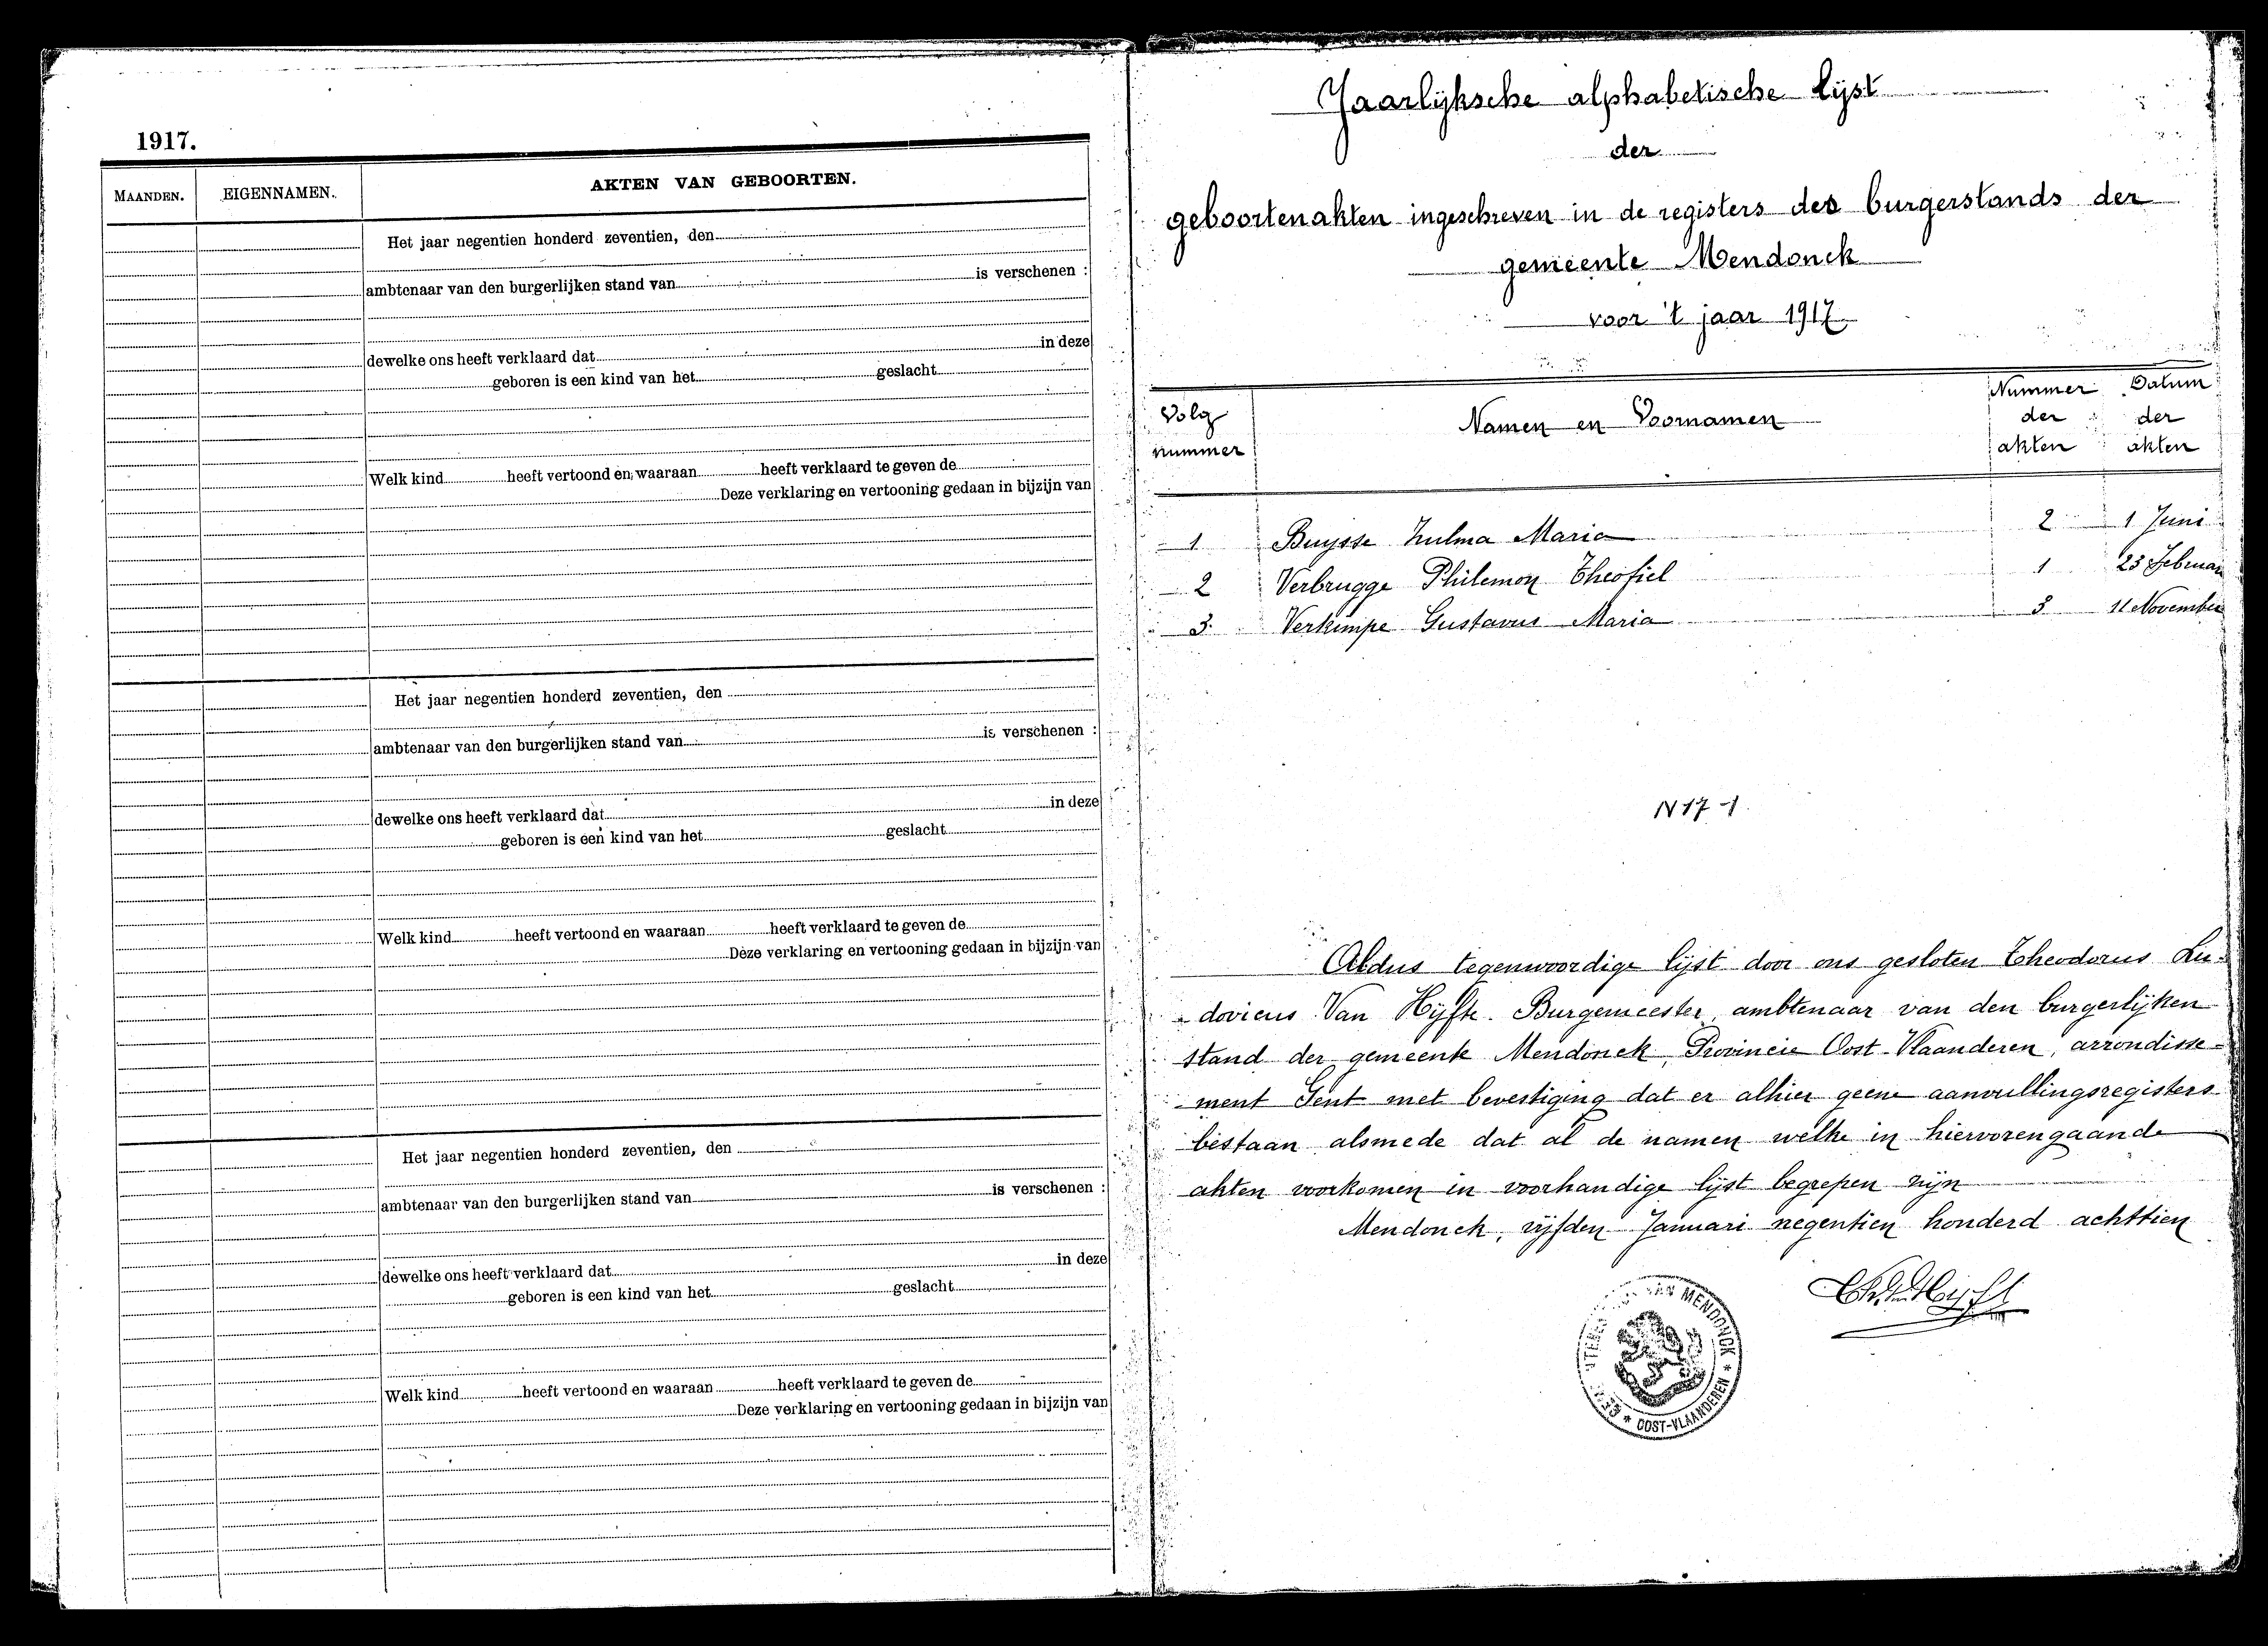 1917.
MAANDEN. EIGENNAMEN. AKTEN VAN GEBOORTEN.
Het jaar negentien honderd zeventien, den
ambtenaar van den burgerlijken stand van is verschenen :
dewelke ons heeft verklaard dat in deze
geboren is een kind van het geslacht
Welk kind heeft vertoond en waaraan heeft verklaard te geven de
Deze verklaring en vertooning gedaan in bijzijn van
Het jaar negentien honderd zeventien, den
ambtenaar van den burgerlijken stand van is verschenen :
dewelke ons heeft verklaard dat in deze
geboren is een kind van het geslacht
Welk kind heeft vertoond en waaraan heeft verklaard te geven de
Deze verklaring en vertooning gedaan in bijzijn van
Het jaar negentien honderd zeventien, den
ambtenaar van den burgerlijken stand van is verschenen :
dewelke ons heeft verklaard dat in deze
geboren is een kind van het geslacht
Welk kind heeft vertoond en waaraan heeft verklaard te geven de
Deze verklaring en vertooning gedaan in bijzijn van
Jaarlijksche alphabetische lijst
der
geboortenakten ingeschreven in de registers des burgerstands der
gemeente Mendonck
voor 't jaar 1917
Volg nummer Namen en Voornamen Nummer der akten Datum der akten
1 Buysse Zulma Maria 2 1 Juni
2 Verbrugge Philemon Theofiel 1 23 Februari
3 Verkimpe Gustavus Maria 3 11 November
N 17 - 1.
Aldus tegenwoordige lijst door ons gesloten Theodorus Lu-
dovicus Van Hijfte Burgemeester, ambtenaar van den burgerlijken
stand der gemeente Mendonck, Provincie Oost-Vlaanderen, arrondisse-
ment Gent met bevestiging dat er alhier geene aanvullingsregisters
bestaan alsmede dat al de namen welke in hiervorengaande
akten voorkomen in voorhandige lijst begrepen zijn
Mendonck, vijfden Januari negentien honderd achttien
MENDONCK * OOST-VLAANDEREN *